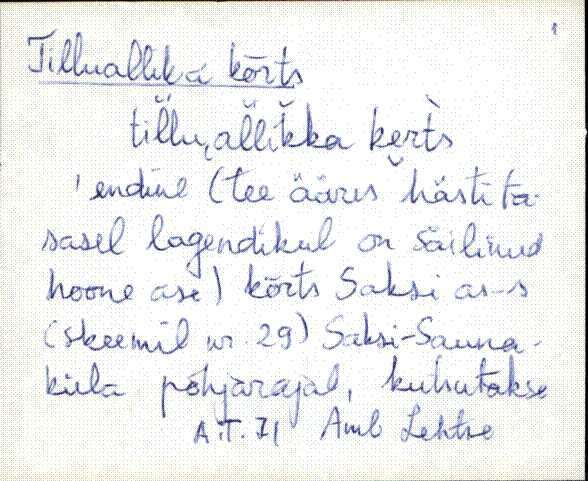 1
Tilluallika kõrts
tillu̬al̆likka ke̮rt̀s
' endine (tee ääres hästi ta-
sasel lagendikul on säilinud
hoone ase) kõrts Saksi as-s
(skeemil nr. 29) Saksi-Sauna-
küla põhjarajal, kutsutakse
A.T. 71 Amb Lehtse